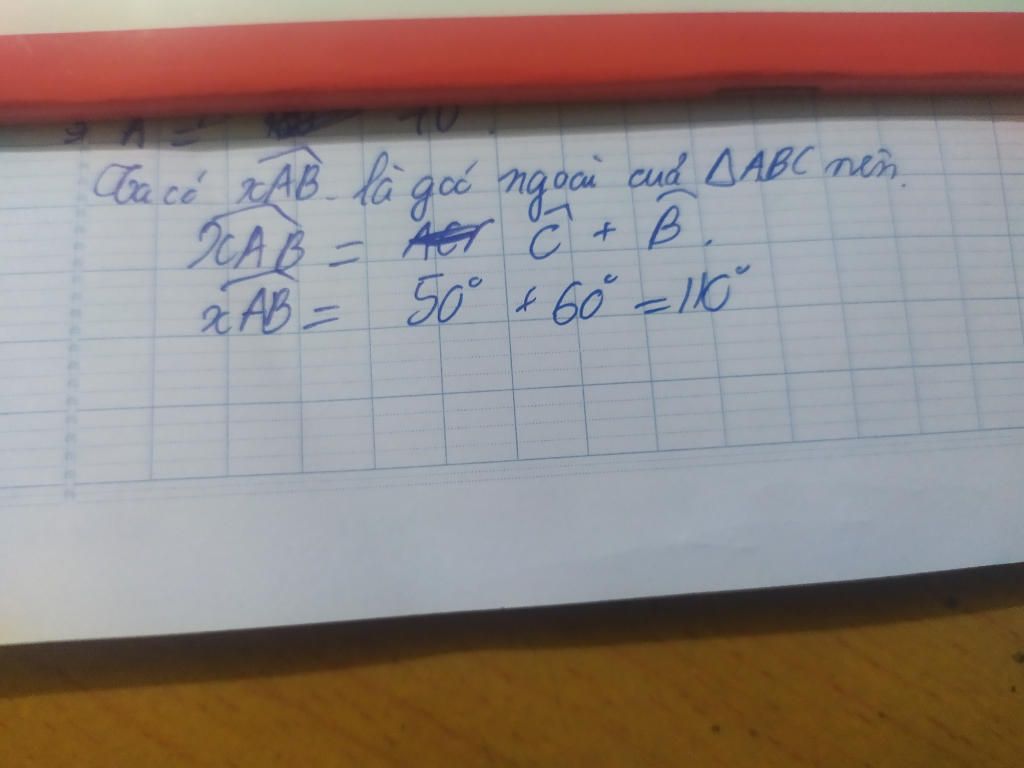 Ta có xAB là góc ngoài cuả ΔABC nên.
xAB = C + B.
xAB = 50° + 60° = 110°